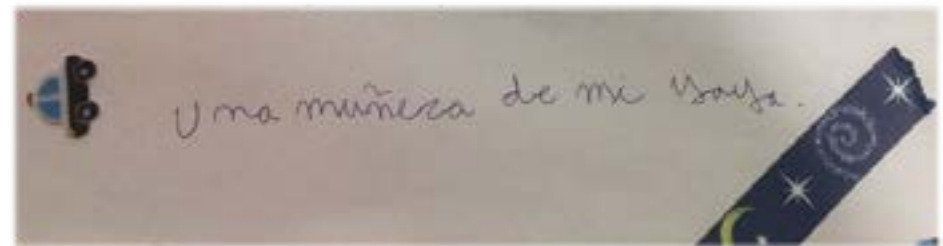 Una muñeca de mi yaya.